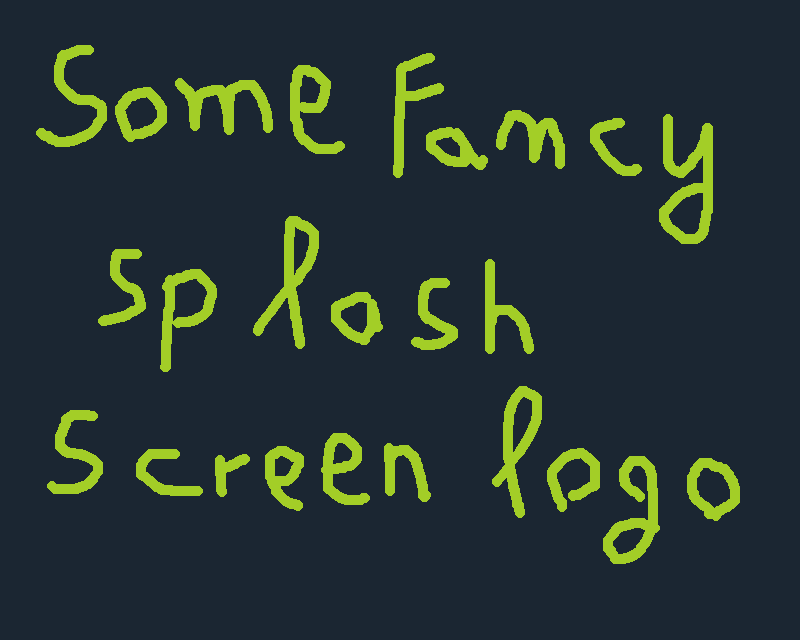 Some Fancy
splash
screen logo